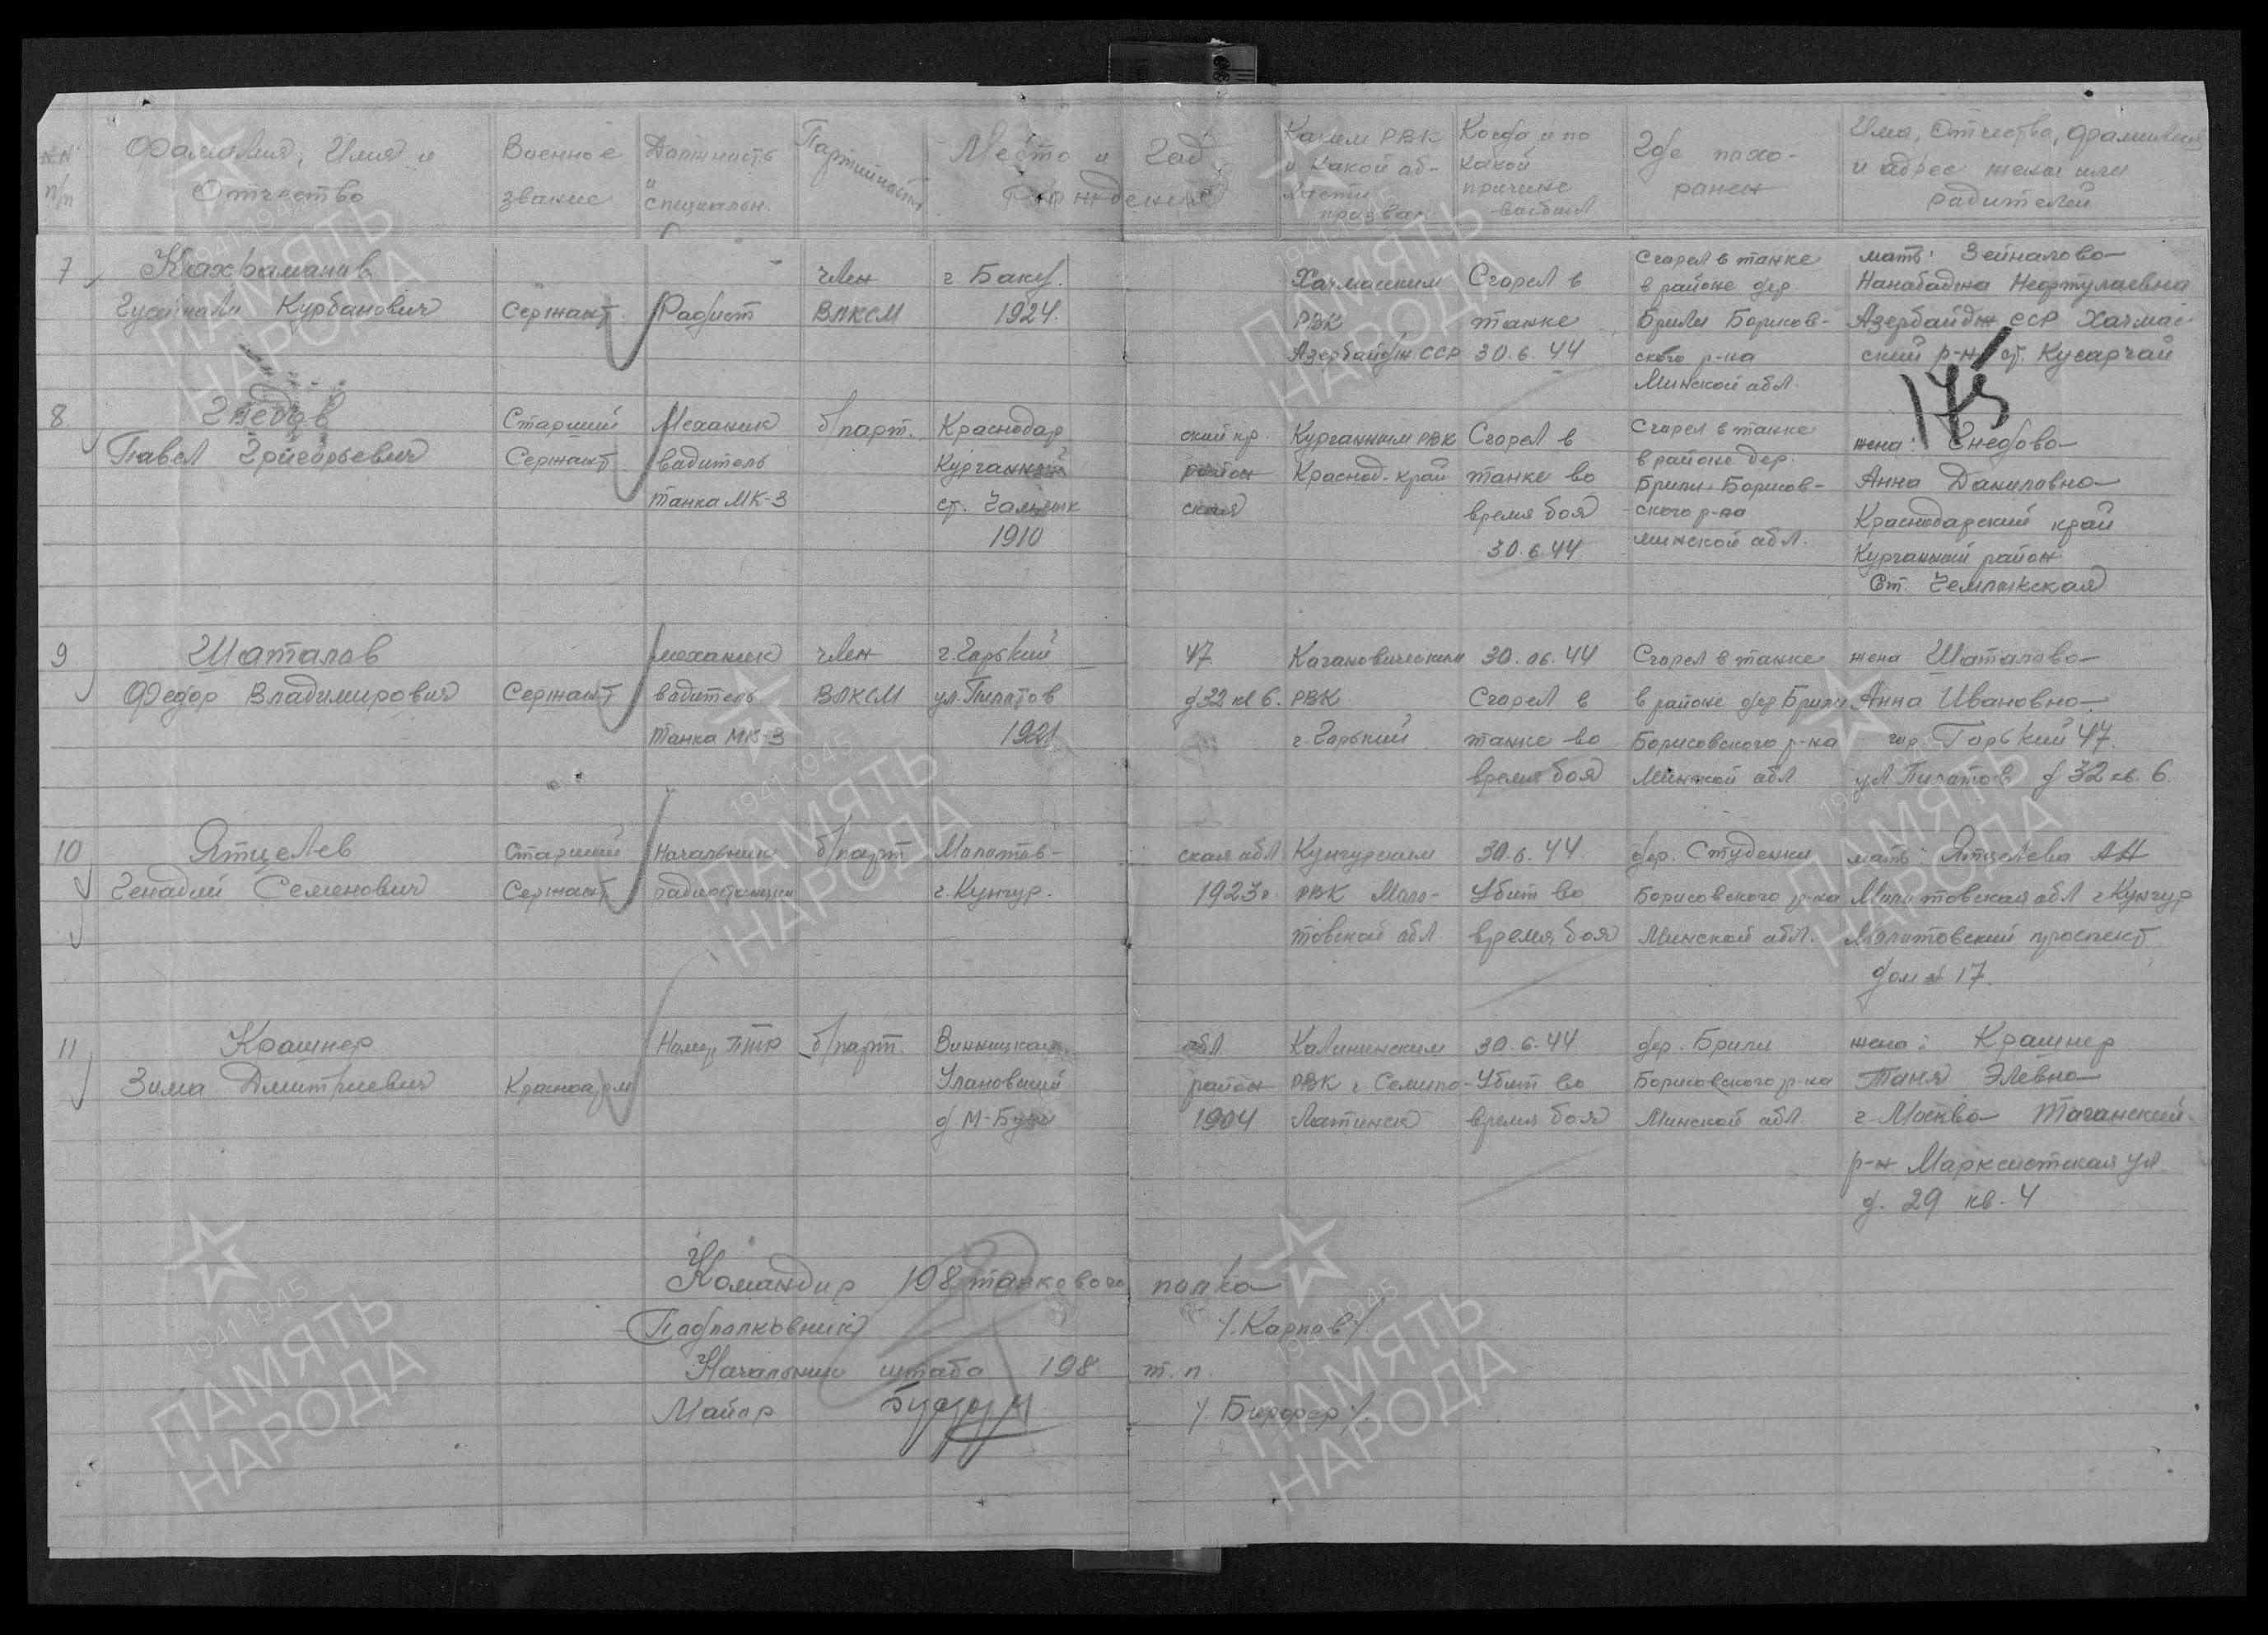 N.N. п/п
Фамилия, Имя и Отчество
Военное звание
Должность и специальн.
Партийность
Место и Год Рождения
Каким РВК и какой области призван
Когда и по какой причине выбыл
Где похоронен
Имя, Отчество, фамилия и адрес жены или родителей
7 Кахраманов член г Баку. Хачмасским Сгорел в Сгорел в танке мать: Зейналова
Гусейнали Курбанович Сержант Радист ВЛКСМ 1924. РВК танке в районе дер. Нанабаджа
Азербайдж. ССР 30.6.44 Брили Борисов- Азербайдж ССР Хачмас-
ского р-на ский р-н ст. Кусарчай
Минской абл.
175
8 Гнедов Старший Механик б/парт. Краснодар ский кр. Курганным РВК Сгорел в Сгорел в танке жена: Гнедова
Павел Григорьевич Сержант вадитель Курганный район Краснод. край танке во в районе дер. Анна Даниловна
танка МК-3 ст. ская время боя Брили Борисов- Краснодарский край
1910 30.6.44 ского р-на Курганный район
минской абл. Ст. Чемлыкская
9 Шаталов механик член г. Горький 47 Кагановическим 30.06.44 Сгорел в танке жена Шаталова
Федор Владимирович Сержант вадитель ВЛКСМ ул. Пилотов д 32 кв 6. РВК Сгорел в в районе дер Брили Анна Ивановна
танка МК-3 1921 г. Горький танке во Борисовского р-на гор Горький 47.
время боя Минской абл ул Пилотов д 32 кв. 6.
10 Ятцелев Старший Начальник б/парт Молотов- ская абл Кунгурским 30.6.44 дер. Студенки мать: Ятцелева АН
Генадий Семенович Сержант радиостанции г. Кунгур. 1923г. РВК Моло- Убит во Борисовского р-на Молотовская абл г Кунгур
товской абл. время боя Минской абл. Молотовский проспект
дом № 17.
11 Крашнер Номер ПТР б/парт. Винницкая абл Калининским 30.6.44 дер. Брили жена: Крашнер
Зима Дмитриевич Красноарм Улановский район РВК г Семипо- Убит во Борисовского р-на Таня Элевна
д М- 1904 латинск время боя Минской абл. г. Москва Таганский
р-н Марксистская ул
д. 29 кв. 4
Командир 198 танкового полка
Подполковник /.Карпов/
Начальник штаба 198 т.п.
Майор
1941 1945
ПАМЯТЬ
НАРОДА
1941 1945
ПАМЯТЬ
НАРОДА
1941 1945
ПАМЯТЬ
НАРОДА
1941 1945
ПАМЯТЬ
НАРОДА
1941 1945
ПАМЯТЬ
НАРОДА
1941 1945
ПАМЯТЬ
НАРОДА